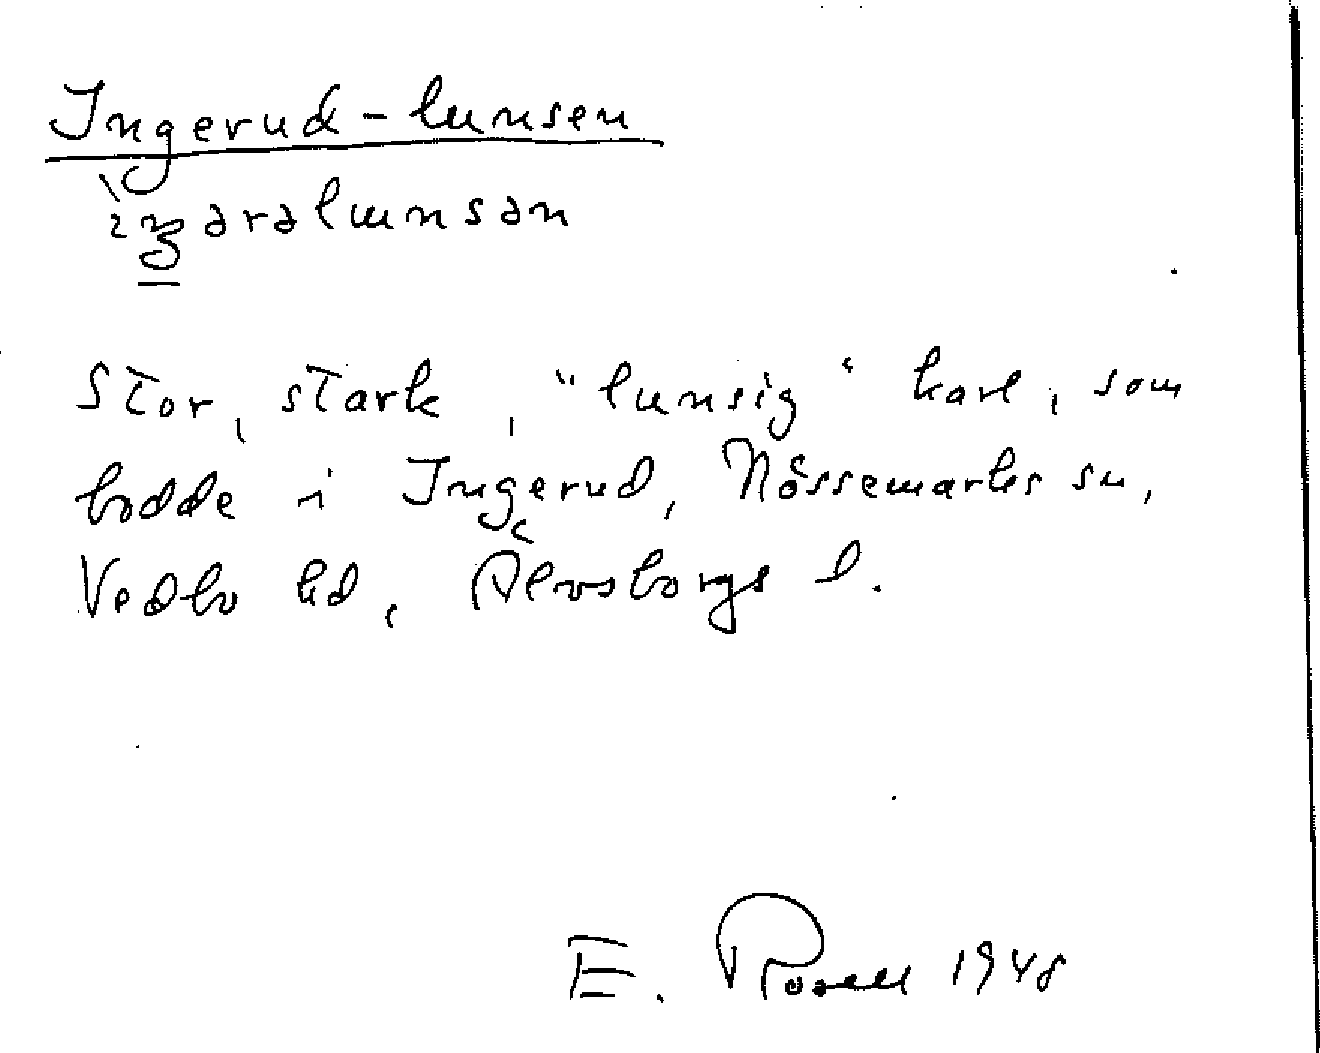 Ingerud-lunsen
Stor, stark, "lunsig" karl, som
bodde i Ingerud, Nössemarks sn,
Vedbo hd, Älvsborgs l.
E. Rosell 1948